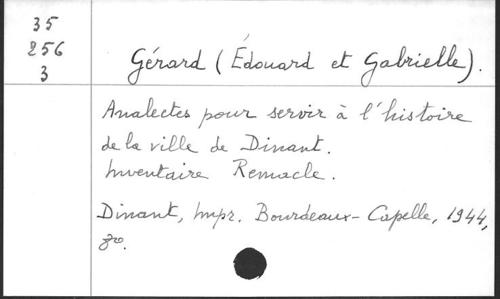 35
256
3
Gérard (Édouard et Gabrielle).
Analectes pour servir à l'histoire
de la ville de Dinant.
Inventaire Remacle.
Dinant, Impr. Bourdeaux-Capelle, 1944,
8vo.